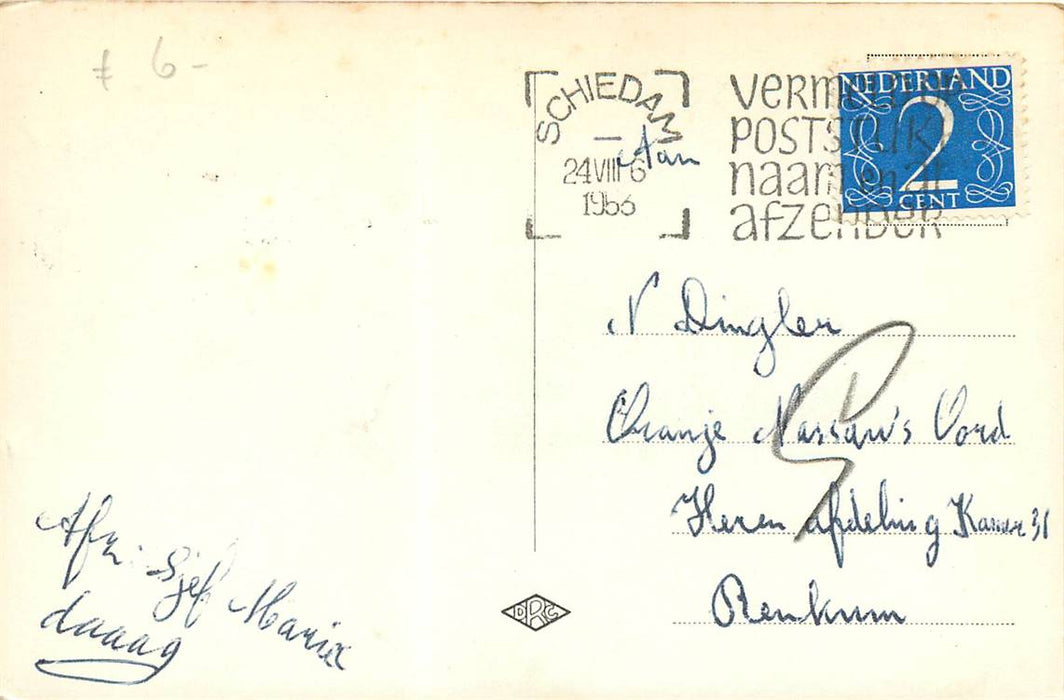 £ 6-
SCHIEDAM
24 VIII 6
1953
VERMELD OP
POSTSTUK
naam en
afzender
NEDERLAND
2
CENT
Aan
N Dingler
Oranje Nassaw's Oord
Heren afdeling Kamer 31
Renkum
Afz: Sjef Maria
daaag